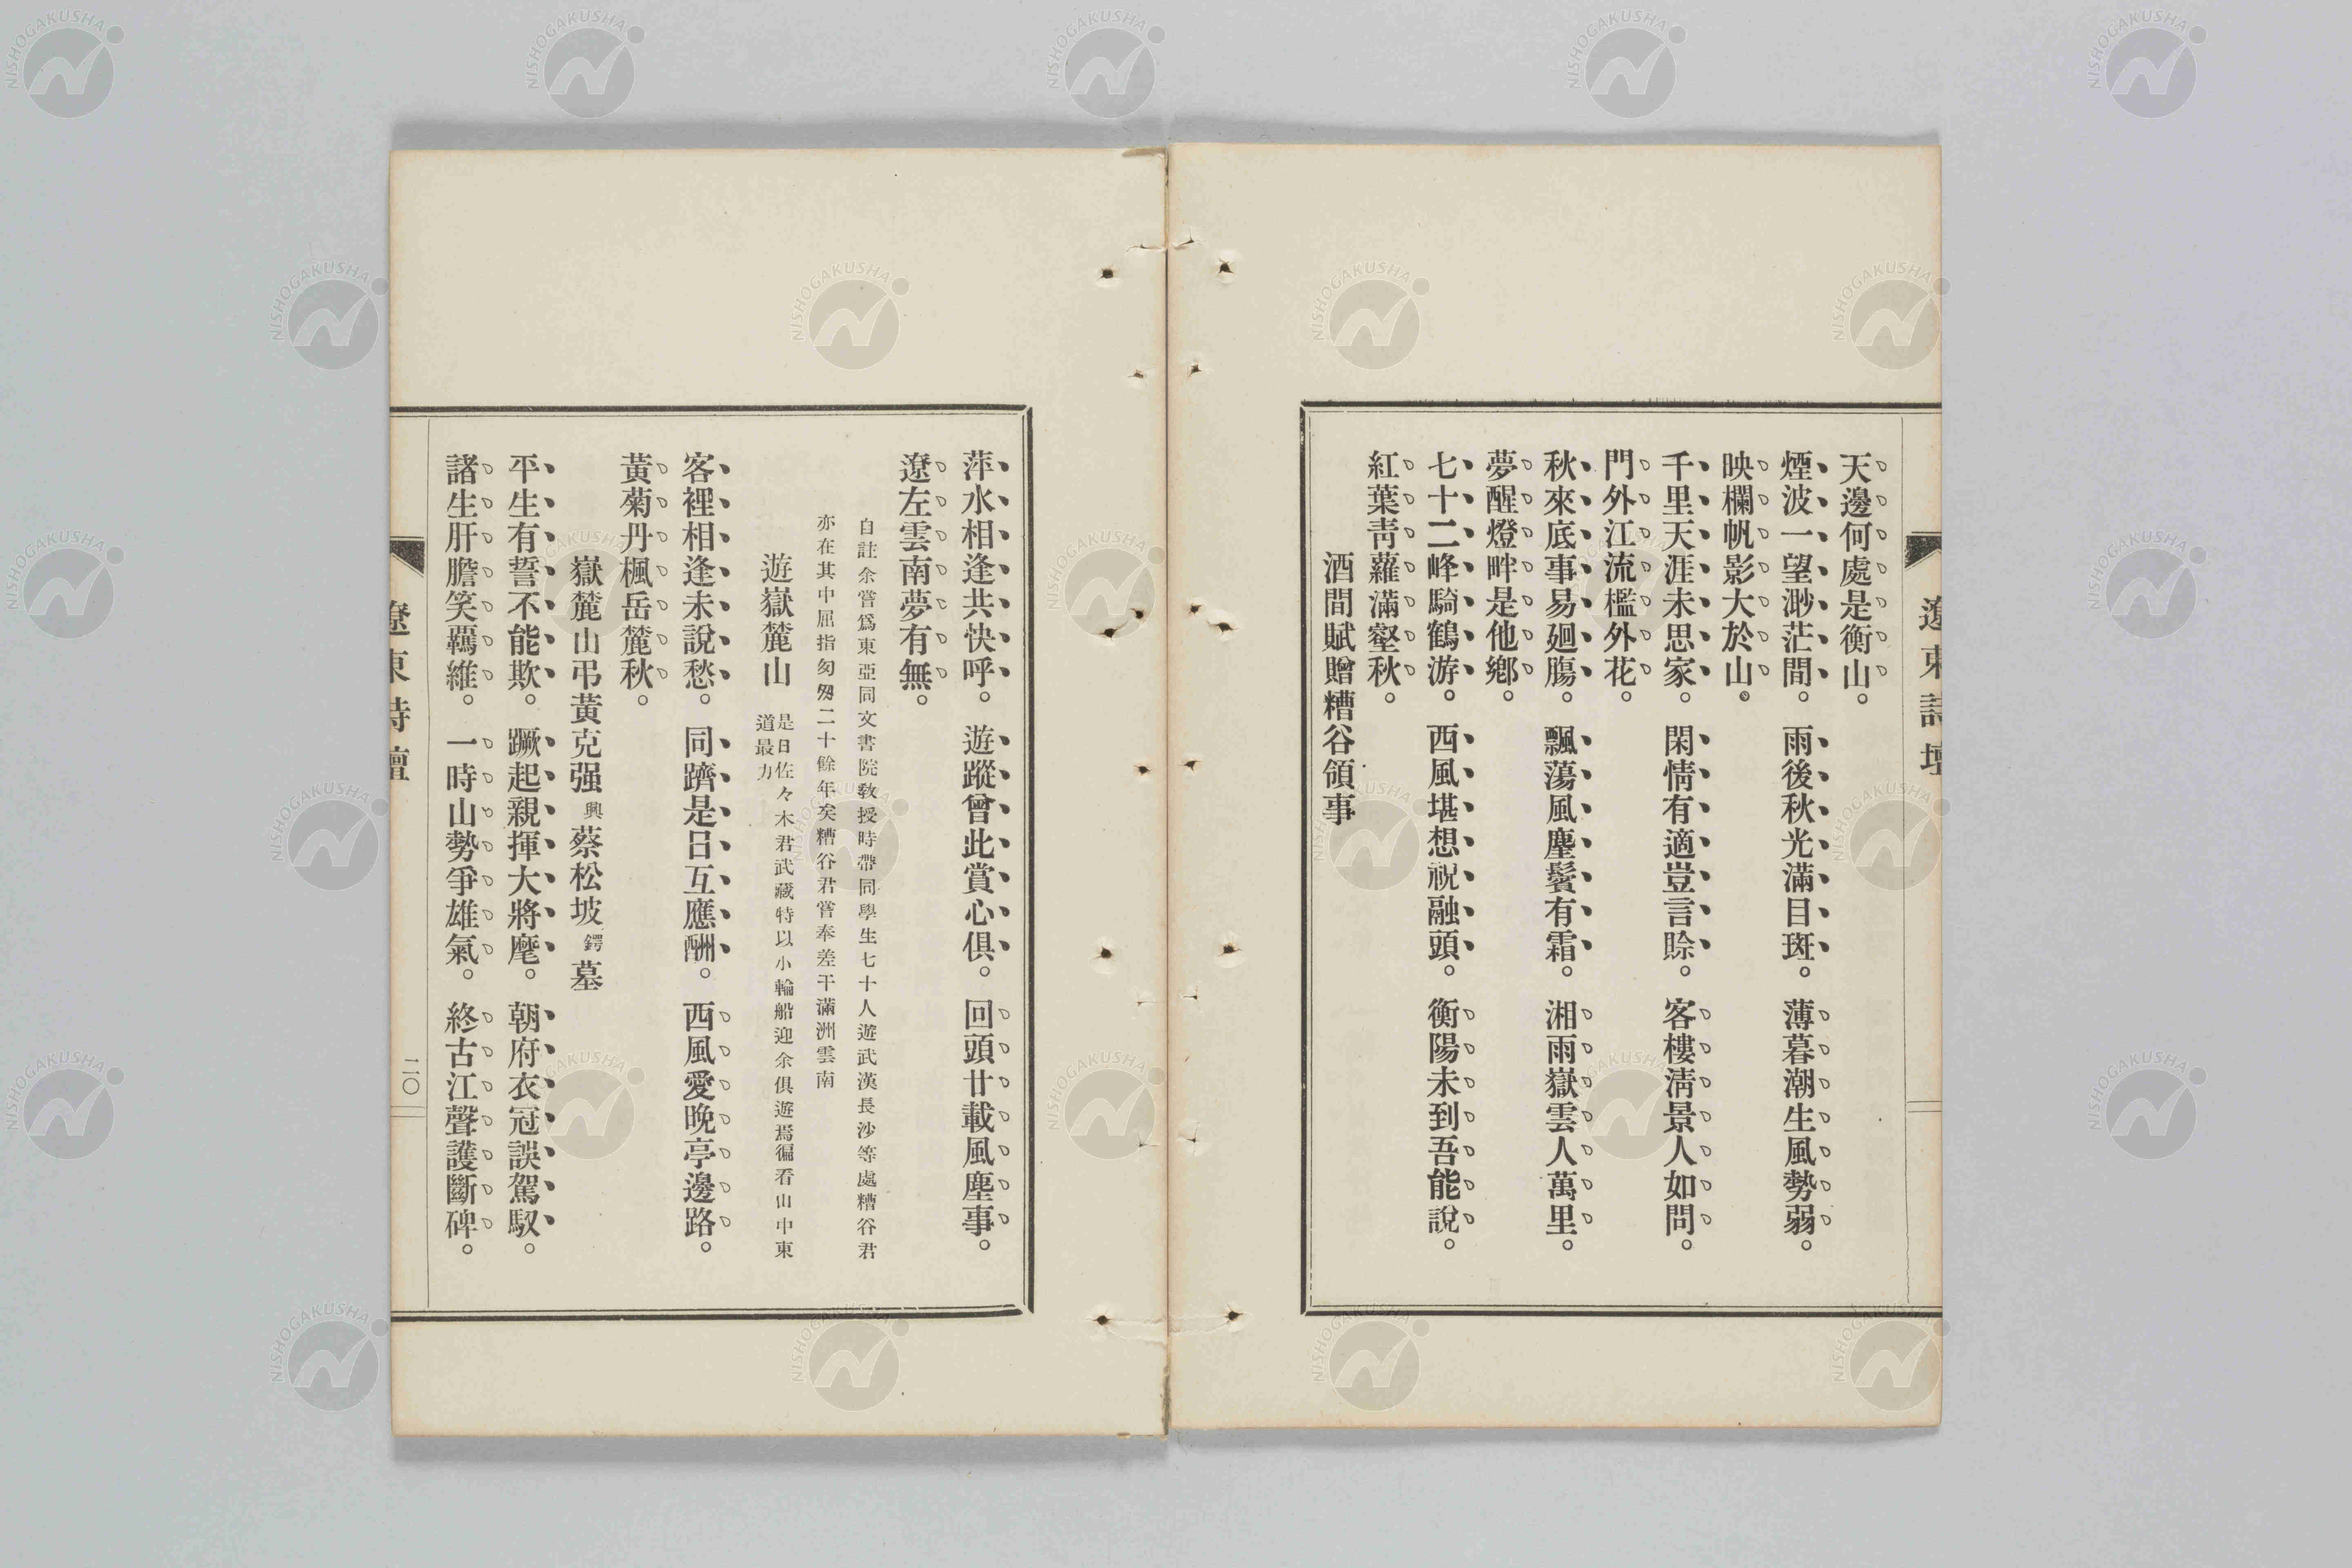 遼東詩壇
天邊何處是衡山。
煙波一望渺茫間。雨後秋光滿目斑。薄暮潮生風勢弱。
映欄帆影大於山。
千里天涯未思家。閑情有適豈言賒。客樓淸景人如問。
門外江流檻外花。
秋來底事易廻膓。飄蕩風塵鬢有霜。湘雨嶽雲人萬里。
夢醒燈畔是他鄕。
七十二峰騎鶴游。西風堪想祝融頭。衡陽未到吾能說。
紅葉靑蘿滿壑秋。
酒間賦贈糟谷領事
萍水相逢共快呼。遊蹤曾此賞心俱。回頭廿載風塵事。
遼左雲南夢有無。
自註余嘗爲東亞同文書院敎授時帶同學生七十人遊武漢長沙等處糟谷君
亦在其中屈指匆匆二十餘年矣糟谷君嘗奉差干滿洲雲南
遊嶽麓山 是日佐々木君武藏特以小輪船迎余俱遊焉徧看山中東
道最力
客裡相逢未說愁。同躋是日互應酬。西風愛晚亭邊路。
黃菊丹楓岳麓秋。
嶽麓山弔黃克强興蔡松坡鍔墓
平生有誓不能欺。蹶起親揮大將麾。朝府衣冠誤駕馭。
諸生肝膽笑羈維。一時山勢爭雄氣。終古江聲護斷碑。
遼東詩壇
二〇
NISHOGAKUSHA